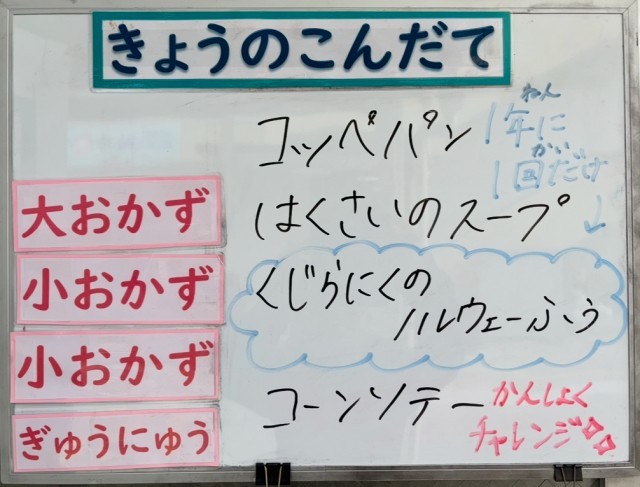 きょうのこんだて
コッペパン
1年に
ねん
1回だけ
かい
↓
大おかず
はくさいのスープ
小おかず
くじらにくの
ノルウェーふう
小おかず
コーンソテー
かんしょく
チャレンジ
ぎゅうにゅう